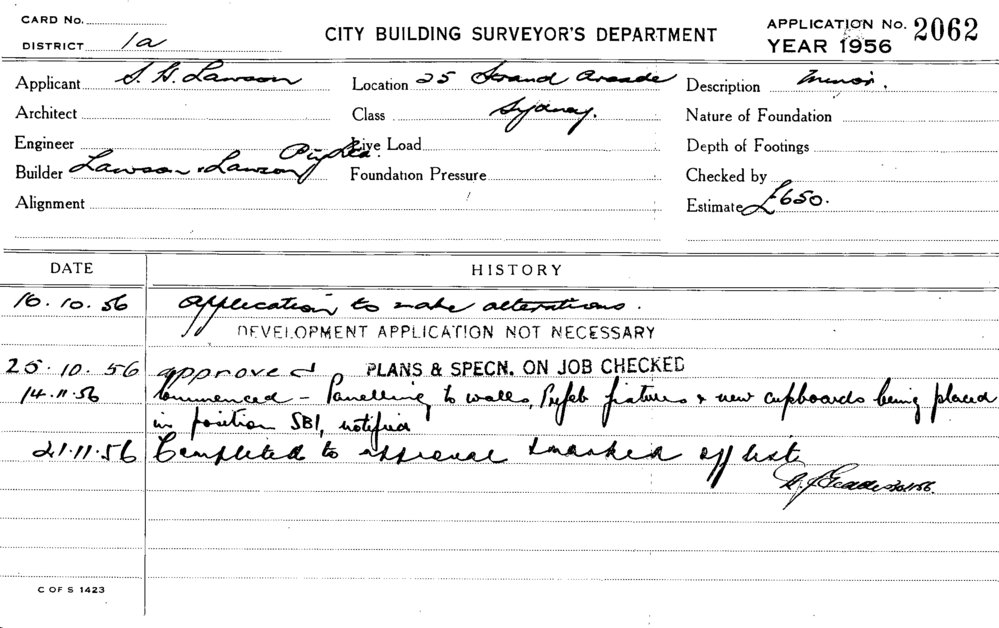 CARD No.
DISTRICT 1a
CITY BUILDING SURVEYOR'S DEPARTMENT
APPLICATION No. 2062
YEAR 1956
Applicant S. G. Lawson
Location 25 Strand Arcade
Description Minor.
Architect
Class Sydney.
Nature of Foundation
Engineer
Live Load
Depth of Footings
Builder Lawson & Lawson Pty Ltd.
Foundation Pressure
Checked by
Alignment
Estimate £650.
DATE
HISTORY
10.10.56 Application to make alterations.
DEVELOPMENT APPLICATION NOT NECESSARY
25.10.56 approved PLANS & SPECN. ON JOB CHECKED
14.11.56 Commenced - Panelling to walls, Prefab fixtures & new cupboards being placed
in position SBI, notified
21.11.56 Completed to approval & marked off list
C OF S 1423